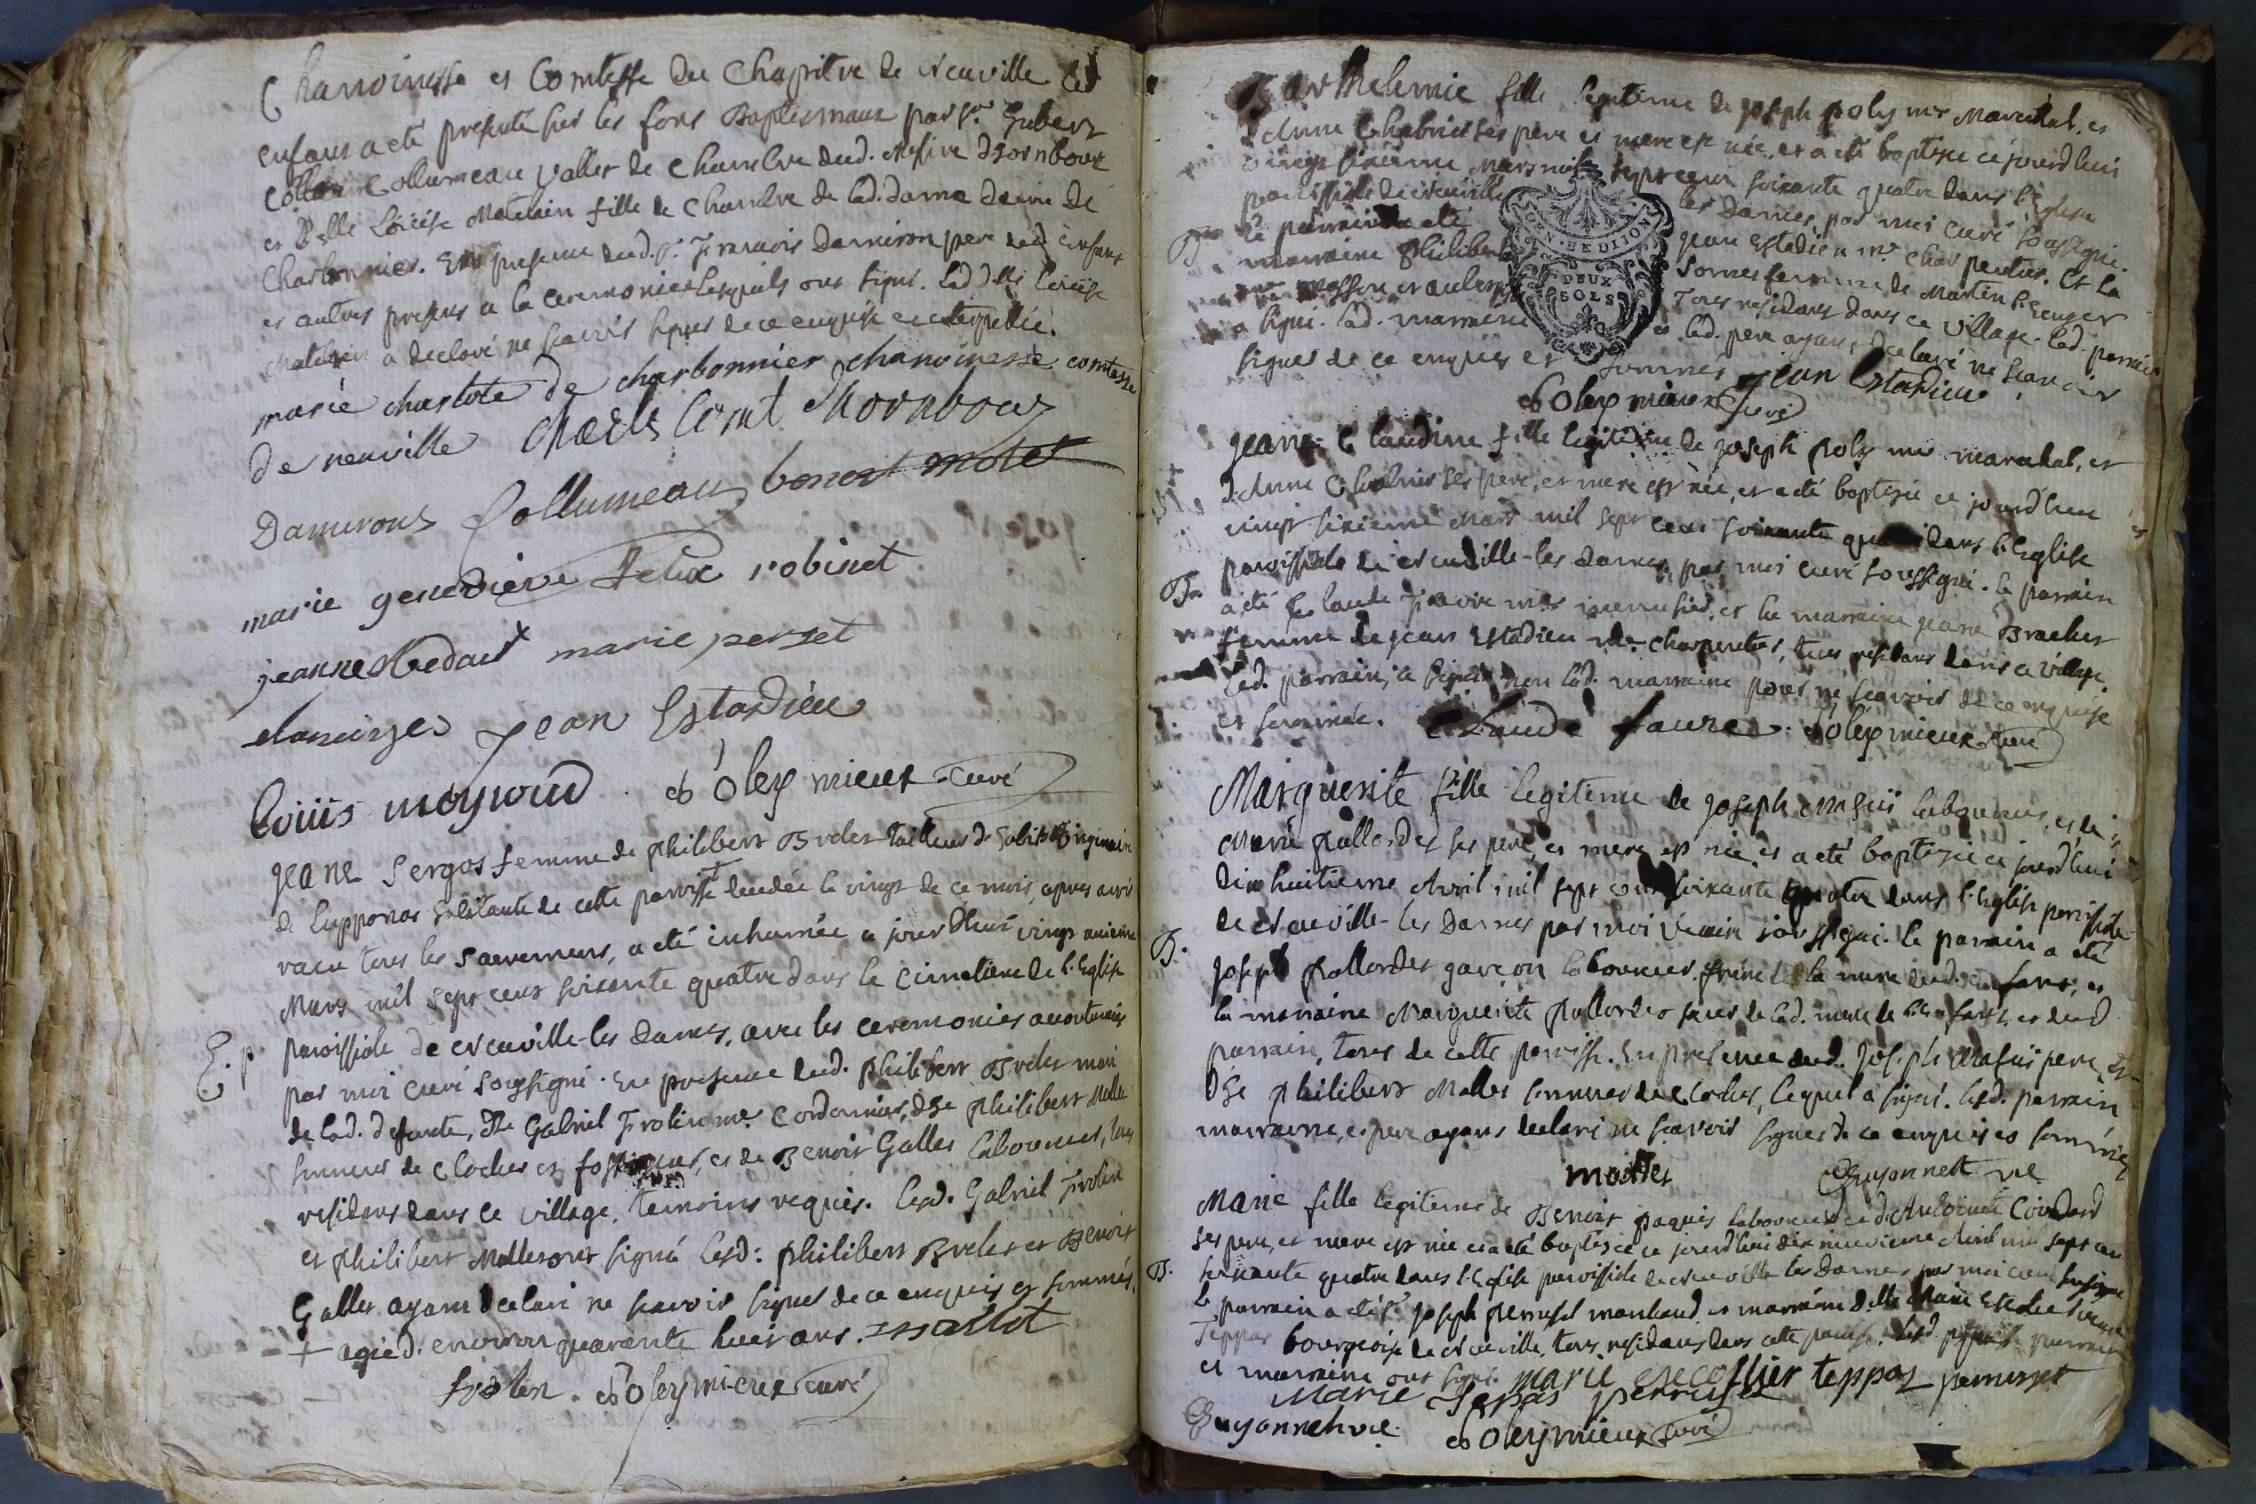 Chanoinesse et Comtesse du Chapitre de Neuville. Led
enfant a eté presenté sur les fons Baptismaux par sr. Hubert
Collumeau Vallet de Chambre dud. Messire d'hornboux
et Delle Loüise Matelain fille de Chambre de lad. dame de
Charbonnier. En presence dud. sr. François Damiron pere dud enfant
et autres presens a la ceremonie Lesquels ont signé. lad delle Loüise
Matelain a declaré ne scavoir signer de ce enquise
marie charlote de charbonnier chanoinesse comtesse
de neuville Charls Comt
Damirons Collumeau benoit molet
marie genevieve robinet
jeanne marie perset
Jean Estadieu
Louiis moyroud. D'Oleymieux curé
Jeane Sergos femme de philibert Brelet tailleur d'habits originaire
de Lupponas habitante de cette paroisse decedée le vingt de ce mois, apres avoir
recu tous les Sacremens, a eté inhumée ce jourd'hui vingt unieme
Mars mil sept cent soixante quatre dans le Cimetiere de l'Eglise
E. p
paroissiale de Neuville-les Dames, avec les ceremonies accoutumées
par moi curé soussigné. En presence dud. philibert Brelet mari
de lad. defunte, De Gabriel Frolin me. Cordonnier, De philibert Mallet
sonneur de cloches et fossoyeur, et de Benoit Gallet laboureur, tous
residans dans ce village, temoins requis. Lesd. Gabriel Frolin
et philibert Mallet ont signé Lesd: philibert Brelet et Benoit
Gallet ayant declaré ne scavoir signer de ce enquis et sommés.
+ agée d'environ quarante huit ans. Mallet
frolin. D'Oleymieux curé
Barthelemie fille legitime de Joseph poly me Marechal, et
d'Anne Chabrier ses pere et mere est née, et a eté baptisée ce jourd'hui
vingt sixieme Mars mil sept cent soixante quatre dans l'Eglise
paroissiale de Neuville les Dames, par moi curé soussigné.
B
le parrain a eté Jean Estadieu me. charpentier. Et la
marraine Philiberte femme de Martin
masson tous residans dans ce village. led. parrain
a signé. lad. marraine et led. pere ayans declaré ne scavoir
signer de ce enquis et sommés Jean Estadieu
D'Oleymieux curé
GEN. DE DIJON
DEUX
SOLS
Jeane-Claudine fille legitime de Joseph poly me maréchal, et
d'Anne Chabrier ses pere, et mere est née, et a eté baptisée ce jourd'hui
vingt sixieme Mars mil sept cent soixante quatre dans l'Eglise
paroissiale de Neuville-les Dames, par moi curé soussigné. le parrain
B
a eté Claude Faure me menusier, et la marraine Jeane Brachet
femme de Jean Estadieu me charpentier, tous residans dans ce village.
Led. parrain, a signé non lad. marraine pour ne scavoir de ce enquise
et sommée. Claude faure. D'Oleymieux curé
Marguerite fille legitime de Joseph laboureur, et de
Marie pallordet ses pere, et mere est née, et a eté baptisée ce jourd'hui
Dix huitieme Avril mil sept cent soixante quatre dans l'Eglise paroissiale
de Neuville-les Dames par moi Vicaire soussigné. le parrain a eté
B.
Joseph pallordet garçon laboureur frere de la mere dud. enfant, et
la marraine Marguerite pallordet soeur de lad. mere de l'enfant, et dud
parrain, tous de cette paroisse. En presence dud. Joseph pere, et
De philibert Mallet sonneur de cloches, lequel a signé. Lesd. parrain
marraine, et pere ayans declaré ne scavoir signer de ce enquis et sommés
mallet Guyonnett vic
Marie fille legitime de Benoit paquis laboureur et d'Antoinette
ses pere, et mere est née et a eté baptisée ce jourd'hui dix neuvieme Avril mil sept cen
B.
soixante quatre dans l'Eglise paroissiale de Neuville les Dames par moi curé soussigné
le parrain a eté sr Joseph perruset marchand et marraine Delle Marie
Teppas bourgeoise de Neuville, tous residans dans cette paroisse. Lesd. parrain
et marraine ont signé marie teppas perruset
Marie perruset
Guyonnett vic D'Oleymieux curé